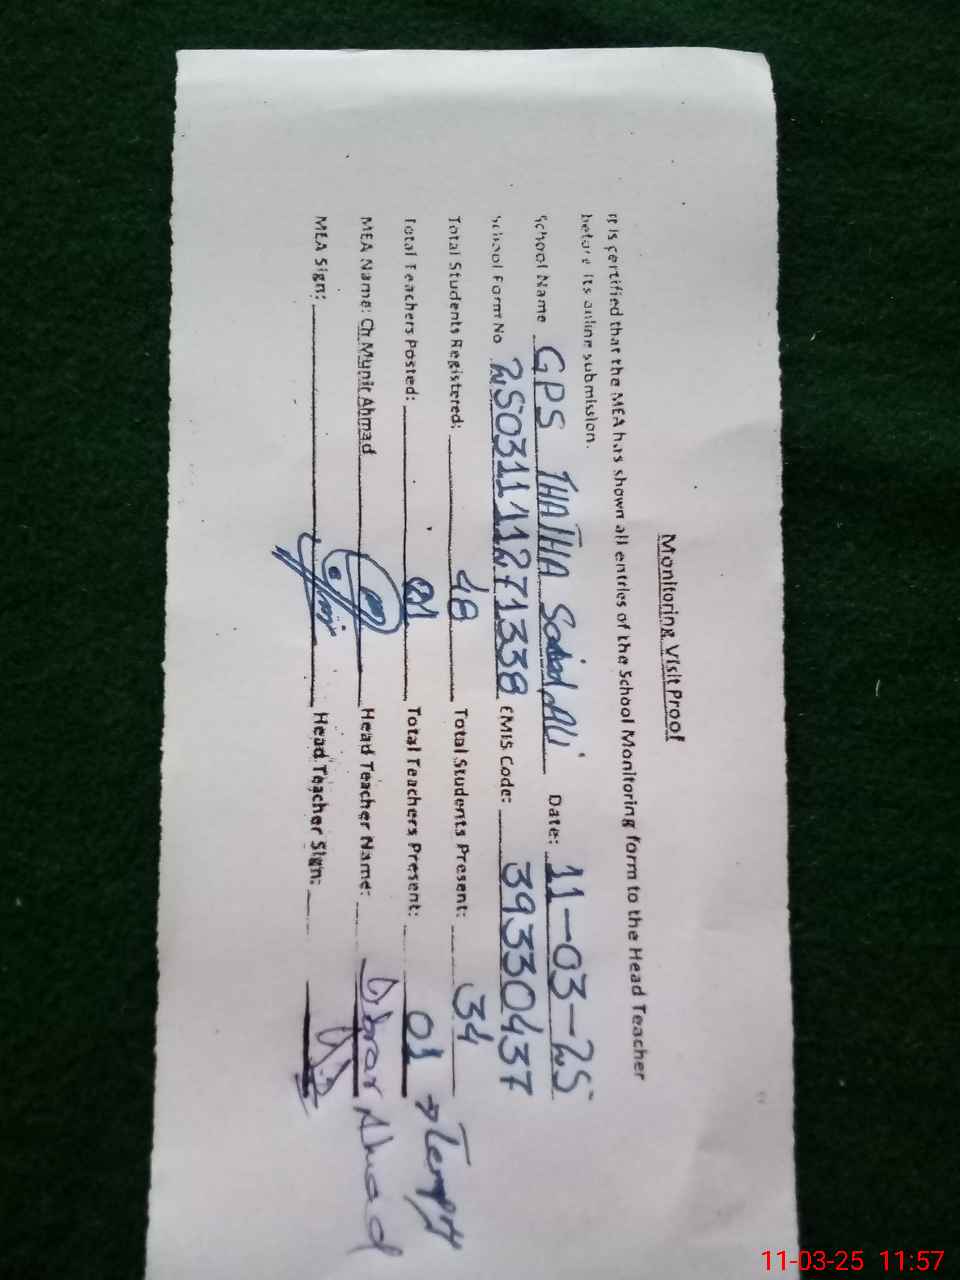 Monitoring Visit Proof
It is certified that the MEA has shown all entries of the School Monitoring form to the Head Teacher
before its online submission.
School Name GPS THATHA Saied Ali Date: 11-03-25
School Form No 25031111271338 EMIS Code: 39330437
Total Students Registered: 48 Total Students Present: 34
Total Teachers Posted: 01 Total Teachers Present: 01 → Temp
MEA Name: Ch.Munir Ahmad Head Teacher Name: Abrar Ahmad
MEA Sign: Head Teacher Sign:
11-03-25 11:57